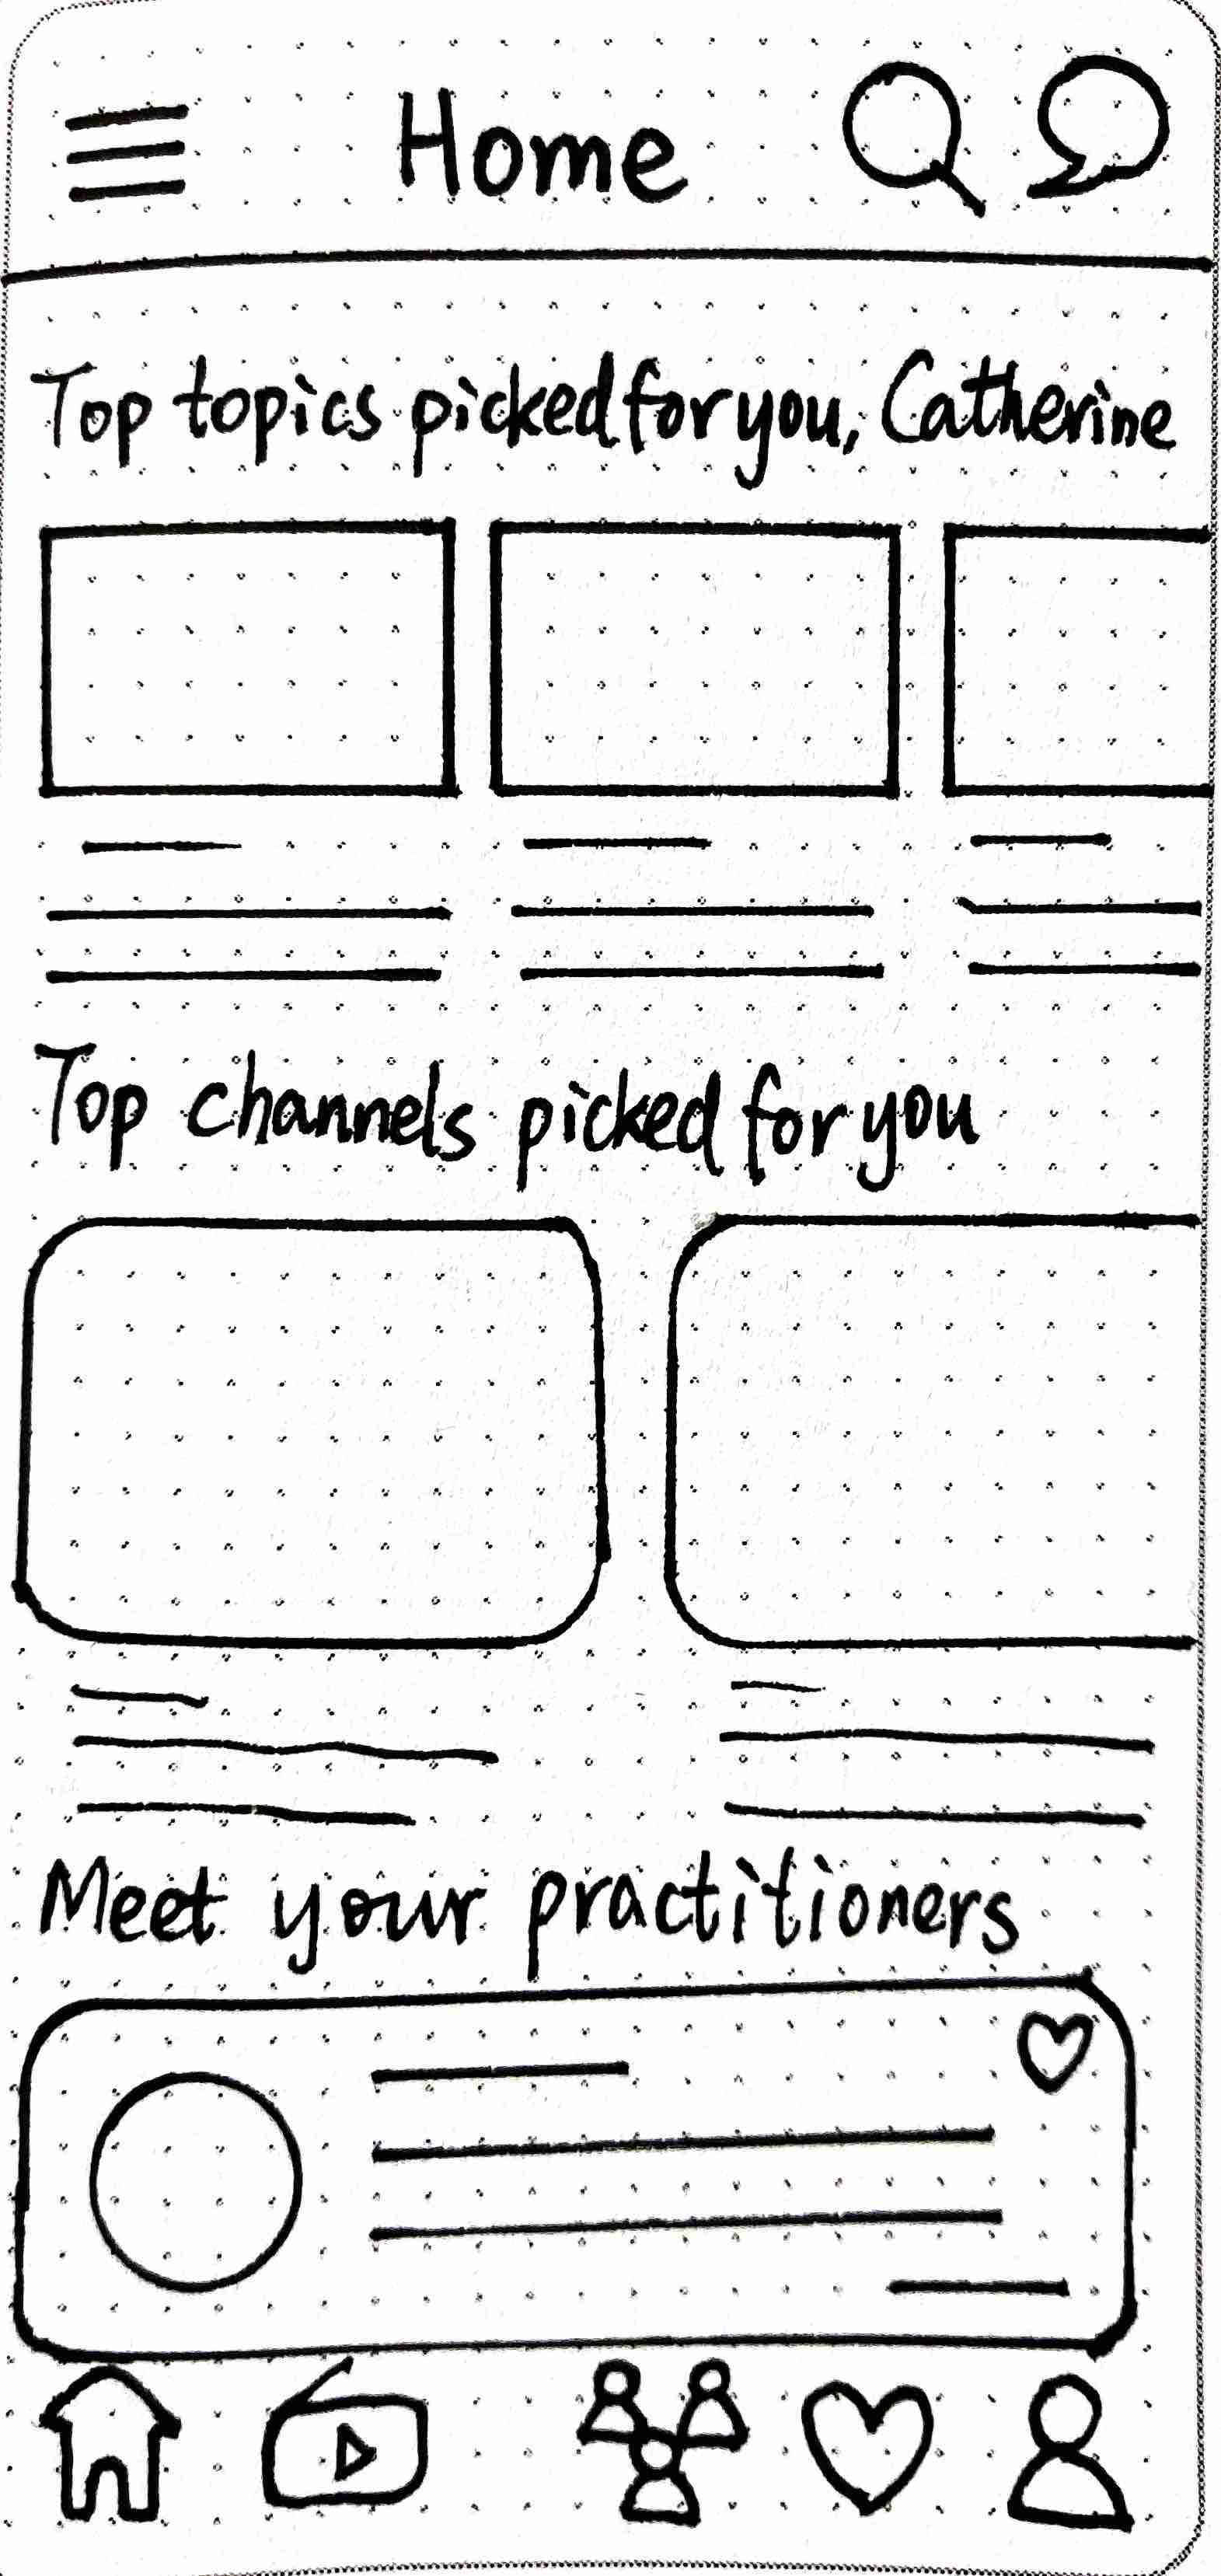 Home
Top topics picked for you, Catherine
Top channels picked for you
Meet your practitioners